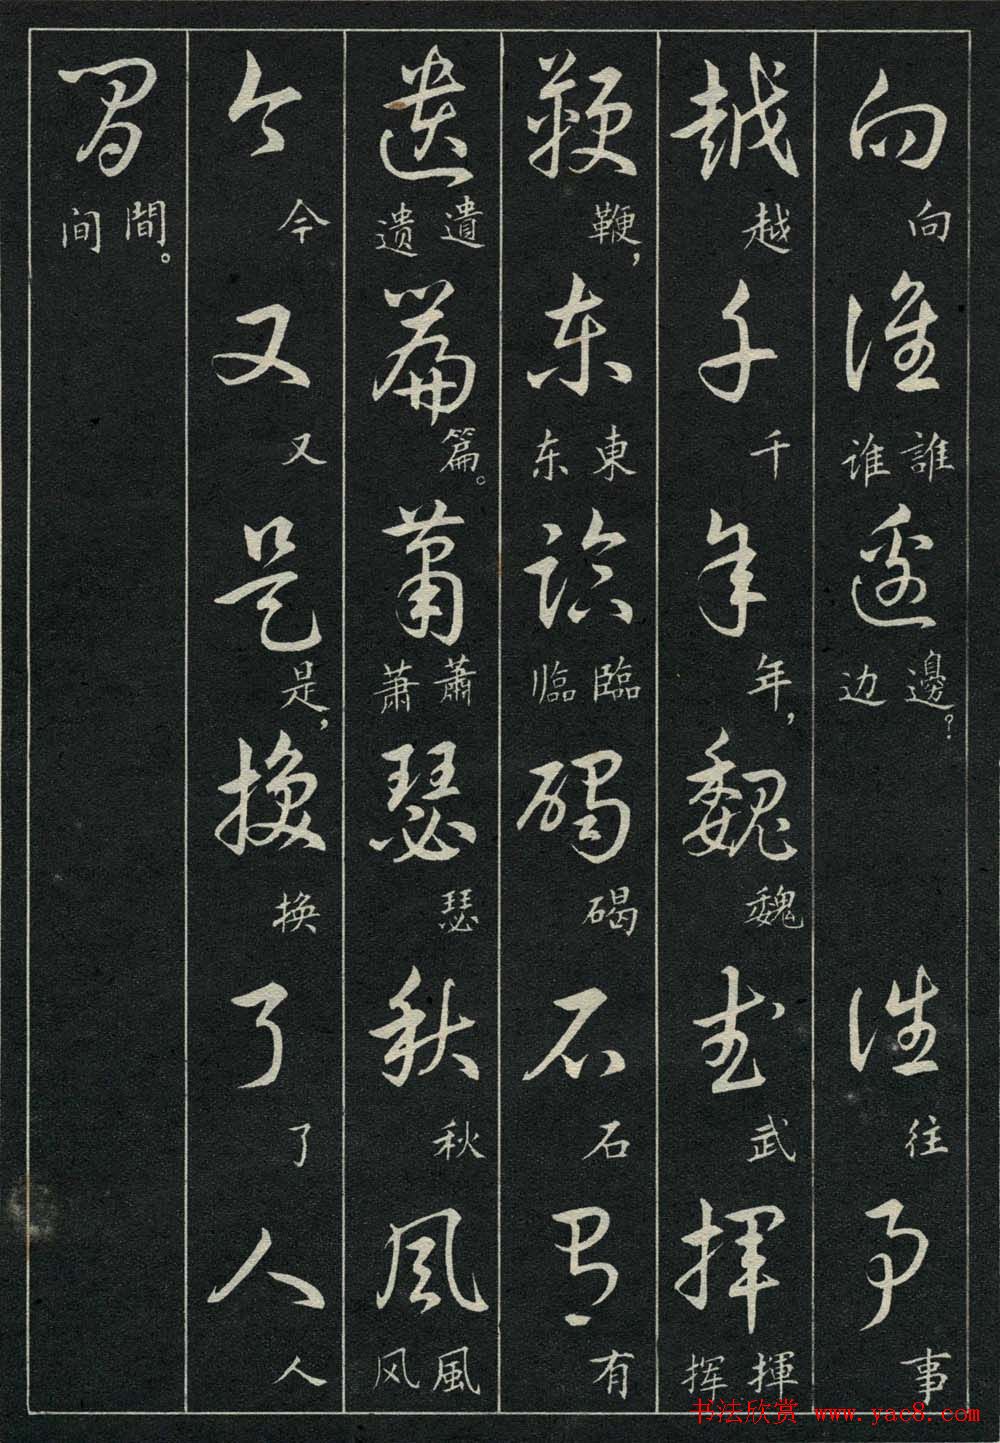 向谁边往事
向誰邊？往事
谁边
越千年魏武挥
越千年，魏武揮
挥
鞭东临碣石有
鞭，東臨碣石有
东临
遗篇萧瑟秋风
遺篇。蕭瑟秋風
遗萧风
今又是换了人
今又是，换了人
间
間。
间
书法欣赏 www.yac8.com